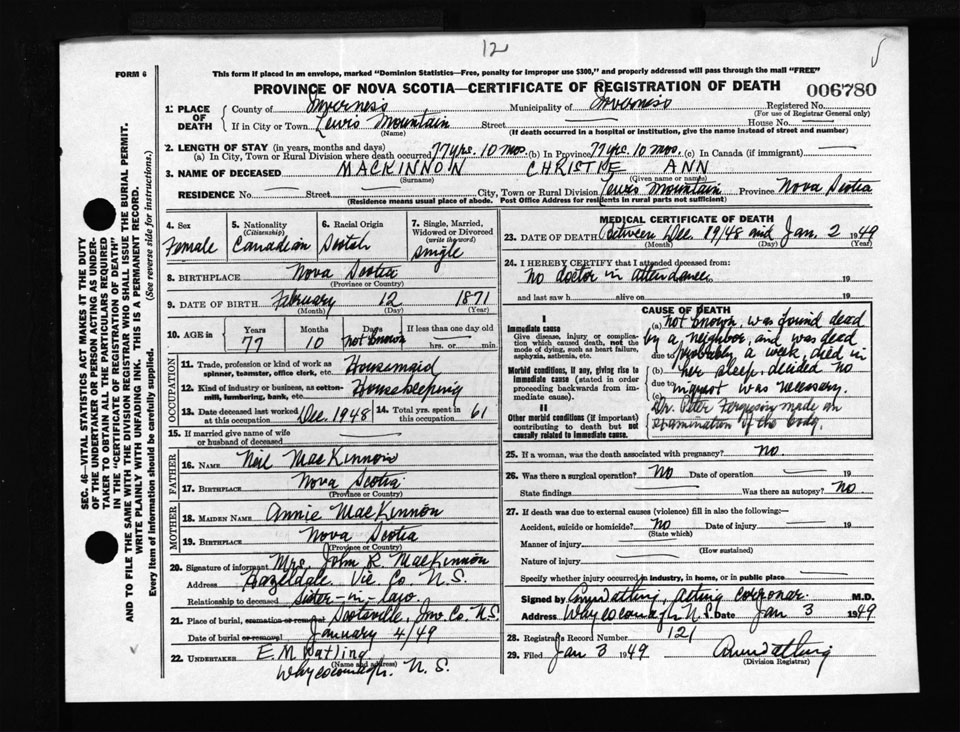 12
FORM 6
This form if placed in an envelope, marked "Dominion Statistics—Free, penalty for improper use $300," and properly addressed will pass through the mail "FREE"
PROVINCE OF NOVA SCOTIA—CERTIFICATE OF REGISTRATION OF DEATH
006780
1. PLACE OF DEATH County of Inverness Municipality of Inverness Registered No.
(For use of Registrar General only)
If in City or Town Lewis Mountain Street House No.
(Name) (If death occurred in a hospital or institution, give the name instead of street and number)
2. LENGTH OF STAY (in years, months and days)
(a) In City, Town or Rural Division where death occurred 77 yrs. 10 mos. (b) In Province 77 yrs. 10 mos. (c) In Canada (if immigrant)
3. NAME OF DECEASED MACKINNON CHRISTIE ANN
(Surname) (Given name or names)
RESIDENCE No. Street City, Town or Rural Division Lewis Mountain Province Nova Scotia
(Residence means usual place of abode. Post Office Address for residents in rural parts not sufficient)
4. Sex Female
5. Nationality (Citizenship) Canadian
6. Racial Origin Scotch
7. Single, Married, Widowed or Divorced (write the word) Single
8. BIRTHPLACE Nova Scotia
(Province or Country)
9. DATE OF BIRTH February 12 1871
(Month) (Day) (Year)
10. AGE in Years 77 Months 10 Days not known If less than one day old hrs. or min.
OCCUPATION
11. Trade, profession or kind of work as spinner, teamster, office clerk, etc. Housemaid
12. Kind of industry or business, as cotton-mill, lumbering, bank, etc. Housekeeping
13. Date deceased last worked at this occupation Dec. 1948
14. Total yrs. spent in this occupation 61
15. If married give name of wife or husband of deceased
FATHER
16. NAME Neil MacKinnon
17. BIRTHPLACE Nova Scotia
(Province or Country)
MOTHER
18. MAIDEN NAME Annie MacKinnon
19. BIRTHPLACE Nova Scotia
(Province or Country)
20. Signature of informant Mrs. John R. MacKinnon
Address Hazeldale Vic. Co. N.S.
Relationship to deceased Sister-in-law
21. Place of burial, cremation or removal Scotsville, Inv. Co. N.S.
Date of burial or removal January 4/49
22. UNDERTAKER E.M. Watling
(Name and address)
Whycocomagh, N.S.
MEDICAL CERTIFICATE OF DEATH
23. DATE OF DEATH Between Dec. 19/48 and Jan. 2 1949
(Month) (Day) (Year)
24. I HEREBY CERTIFY that I attended deceased from:
no doctor in attendance 19
and last saw h alive on 19
CAUSE OF DEATH
I
Immediate cause
Give disease, injury or complication which caused death, not the mode of dying, such as heart failure, asphyxia, asthenia, etc.
Morbid conditions, if any, giving rise to immediate cause (stated in order proceeding backwards from immediate cause).
II
Other morbid conditions (if important) contributing to death but not causally related to immediate cause.
(a) Not known, was found dead
by a neighbor, and was dead
due to probably a week, died in
(b) her sleep, decided no
due to inquest was necessary.
(c)
Dr. Peter Ferguson made an
examination of the body.
25. If a woman, was the death associated with pregnancy? no.
26. Was there a surgical operation? No Date of operation 19
State findings Was there an autopsy? No.
27. If death was due to external causes (violence) fill in also the following:—
Accident, suicide or homicide? no Date of injury 19
(State which)
Manner of injury
(How sustained)
Nature of injury
Specify whether injury occurred in industry, in home, or in public place
Signed by Watling, Acting Corponer. M.D.
Address Whycocomagh N.S. Date Jan 3 1949
28. Registrar's Record Number 121
29. Filed Jan 3 1949 Watling
(Division Registrar)
SEC. 46—VITAL STATISTICS ACT MAKES IT THE DUTY
OF THE UNDERTAKER OR PERSON ACTING AS UNDER-
TAKER TO OBTAIN ALL THE PARTICULARS REQUIRED
IN THE "CERTIFICATE OF REGISTRATION OF DEATH"
AND TO FILE THE SAME WITH THE DIVISION REGISTRAR WHO SHALL ISSUE THE BURIAL PERMIT.
WRITE PLAINLY WITH UNFADING INK. THIS IS A PERMANENT RECORD.
Every item of information should be carefully supplied. (See reverse side for instructions.)